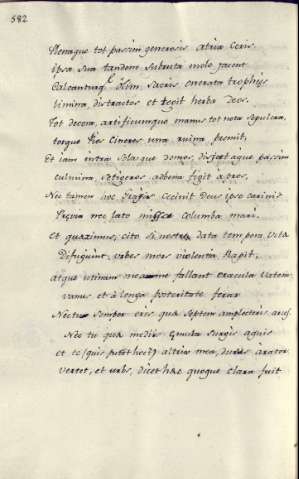 582
Plenaque tot passim generosis atria ceris
ipsa sua tandem subruta mole jacent
Calcanturq. Olim sacris onerata trophijs
limina, distractos et tegit herba deos.
Tot decora, artificumque manus, tot nota sepulcra,
totque pios cineres una ruina premit,
Et iam intra solasque domos, disjectaque passim
culmina, setigeros advena figit apros.
Nec tamen hoc Grajis cecinit Deus ipse carinis
Prævia nec lato missa columba mari.
et quærimus, cito si nostræ data tempora vitæ
Diffugiunt, urbes mors violenta Rapit,
atque utinam mea me fallant oracula Vatem
vanus et à longa posteritate ferar
Nec tu semper eris quæ Septem amplecteris arces
Nec tu quæ mediis Æmula surgis aquis
et te (quis putet hoc?) altrix mea, durus arator
Vertet, et urbs, dicet hæc quoque clara fuit